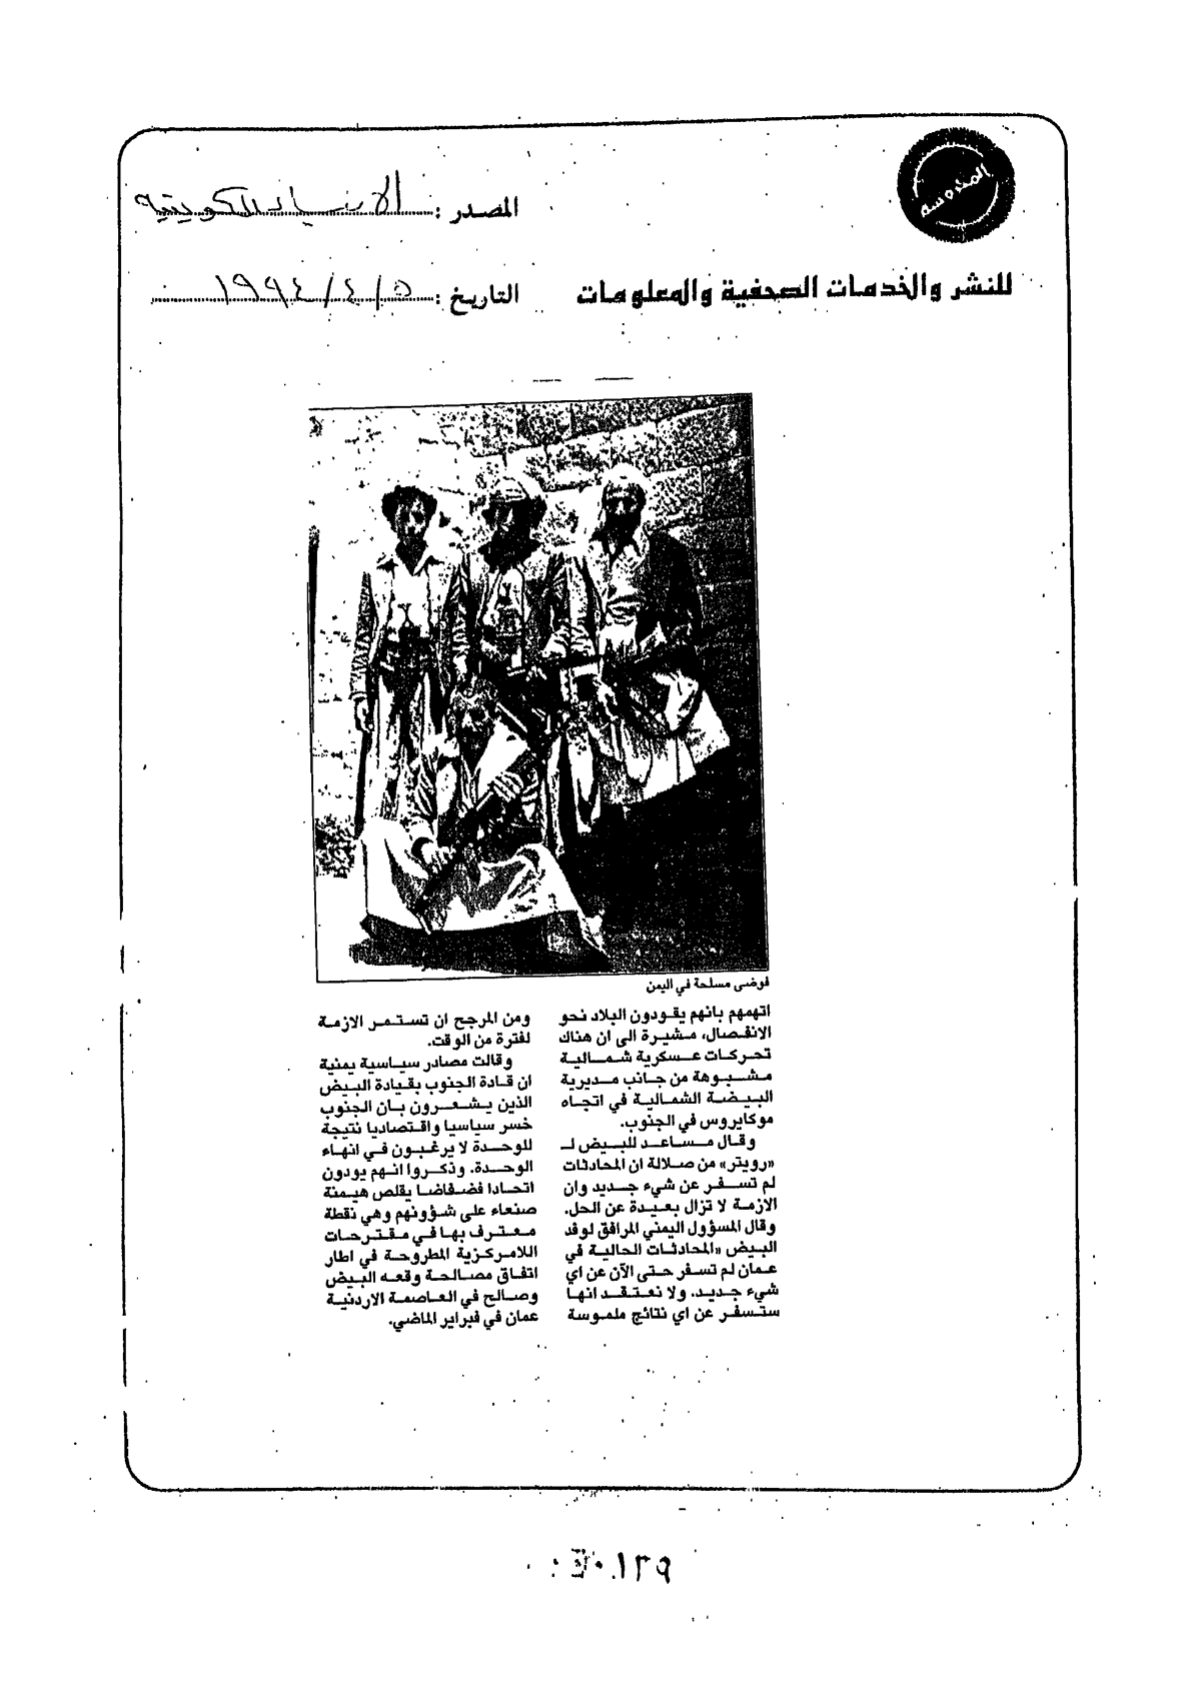 المدروسة
المصدر : الانباء الكويتية
للنشر والخدمات الصحفية والمعلومات
التاريخ : ٥ / ٤ / ١٩٩٤
فوضى مسلحة في اليمن
اتهمهم بانهم يقودون البلاد نحو
الانفصال، مشيرة الى ان هناك
تحركات عسكرية شمالية
مشبوهة من جانب مديرية
البيضة الشمالية في اتجاه
موكايروس في الجنوب.
وقال مساعد للبيض لـ
«رويتر» من صلالة ان المحادثات
لم تسفر عن شيء جديد وان
الازمة لا تزال بعيدة عن الحل.
وقال المسؤول اليمني المرافق لوفد
البيض «المحادثات الحالية في
عمان لم تسفر حتى الآن عن اي
شيء جديد. ولا نعتقد انها
ستسفر عن اي نتائج ملموسة
ومن المرجح ان تستمر الازمة
لفترة من الوقت.
وقالت مصادر سياسية يمنية
ان قادة الجنوب بقيادة البيض
الذين يشعرون بان الجنوب
خسر سياسيا واقتصاديا نتيجة
للوحدة لا يرغبون في انهاء
الوحدة. وذكروا انهم يودون
اتحادا فضفاضا يقلص هيمنة
صنعاء على شؤونهم وهي نقطة
معترف بها في مقترحات
اللامركزية المطروحة في اطار
اتفاق مصالحة وقعه البيض
وصالح في العاصمة الاردنية
عمان في فبراير الماضي.